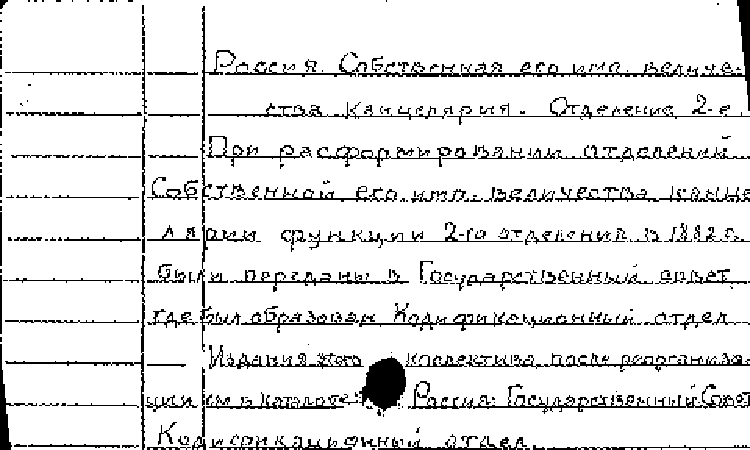 Россия. Собственная его имп. величе-
ства канцелярия. Отделение 2-е.
При расформировании отделений
Собственной его имп. величества канце
лярии функции 2-го отделения в 1882 г.
были переданы в Государственный совет,
где был образован Кодификационный отдел
Издания этого коллектива после реорганиза-
ции см. в каталоге: Россия. Государственный Совет
Кодификационный отдел.